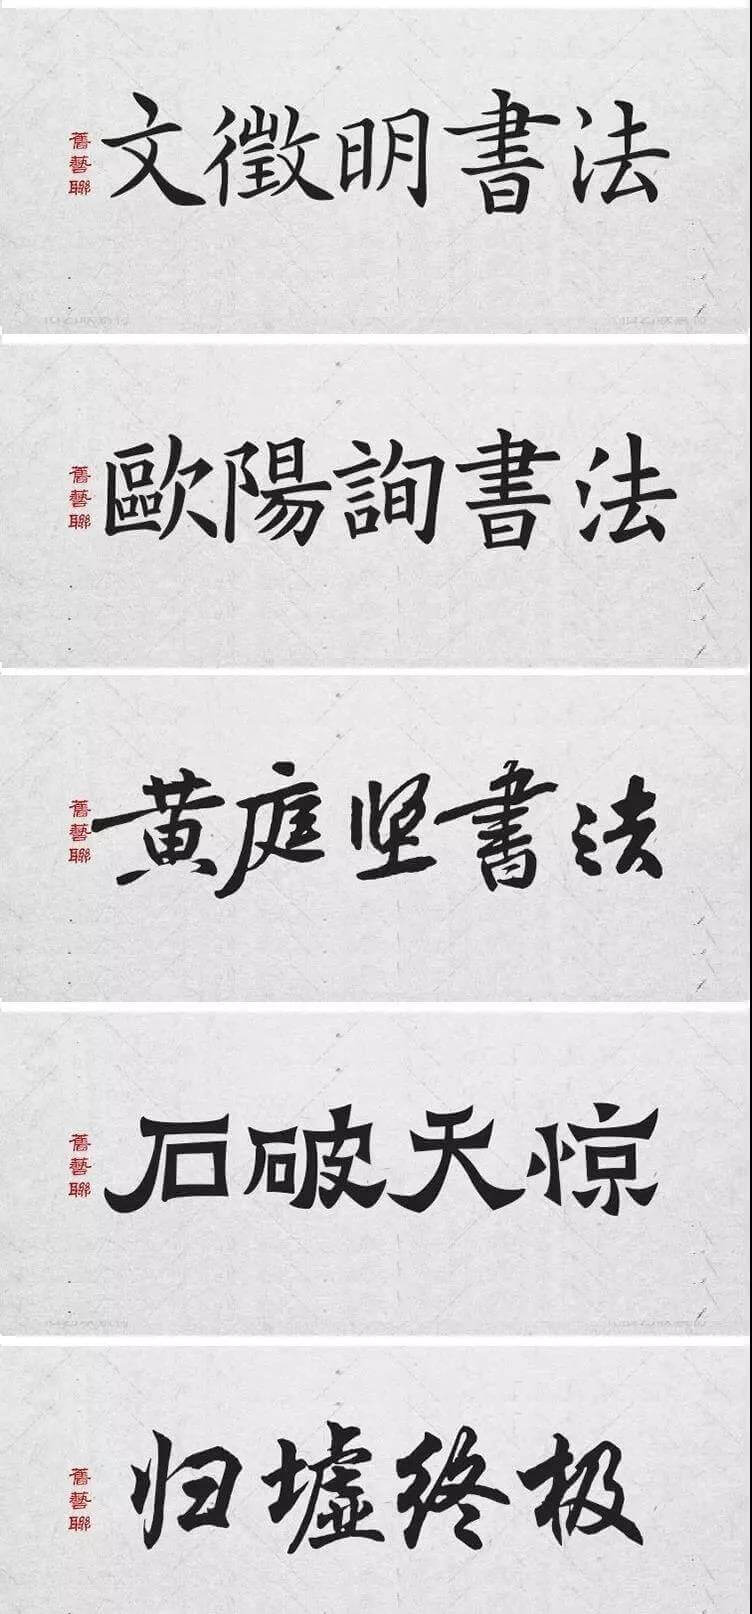 舊藝聯
文徵明書法
舊藝聯
歐陽詢書法
舊藝聯
黄庭坚書法
舊藝聯
石破天惊
舊藝聯
归墟终极